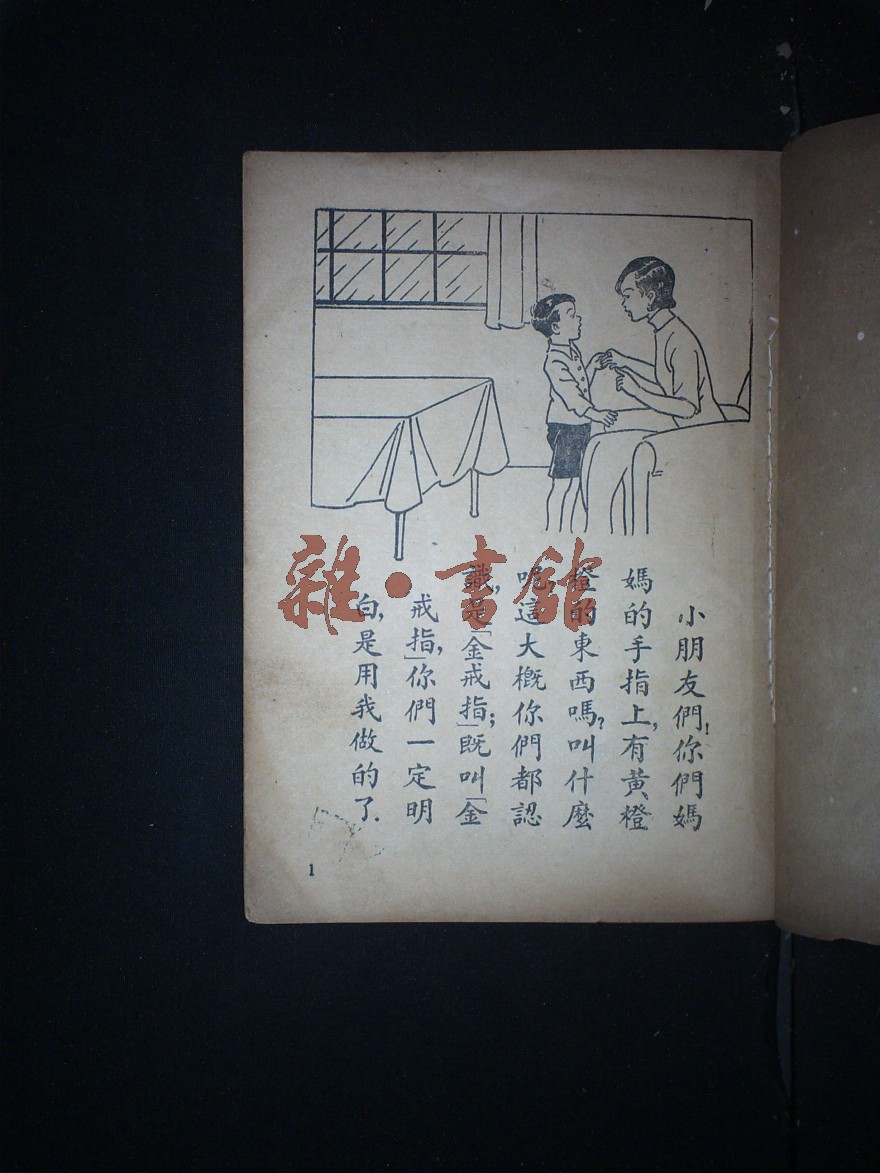 小朋友們!你們媽
媽的手指上,有黃橙
橙的東西嗎?叫什麼
呢,這大概你們都認
識,是「金戒指」;既叫「金
戒指,」你們一定明
白,是用我做的了.
1
雜·書館